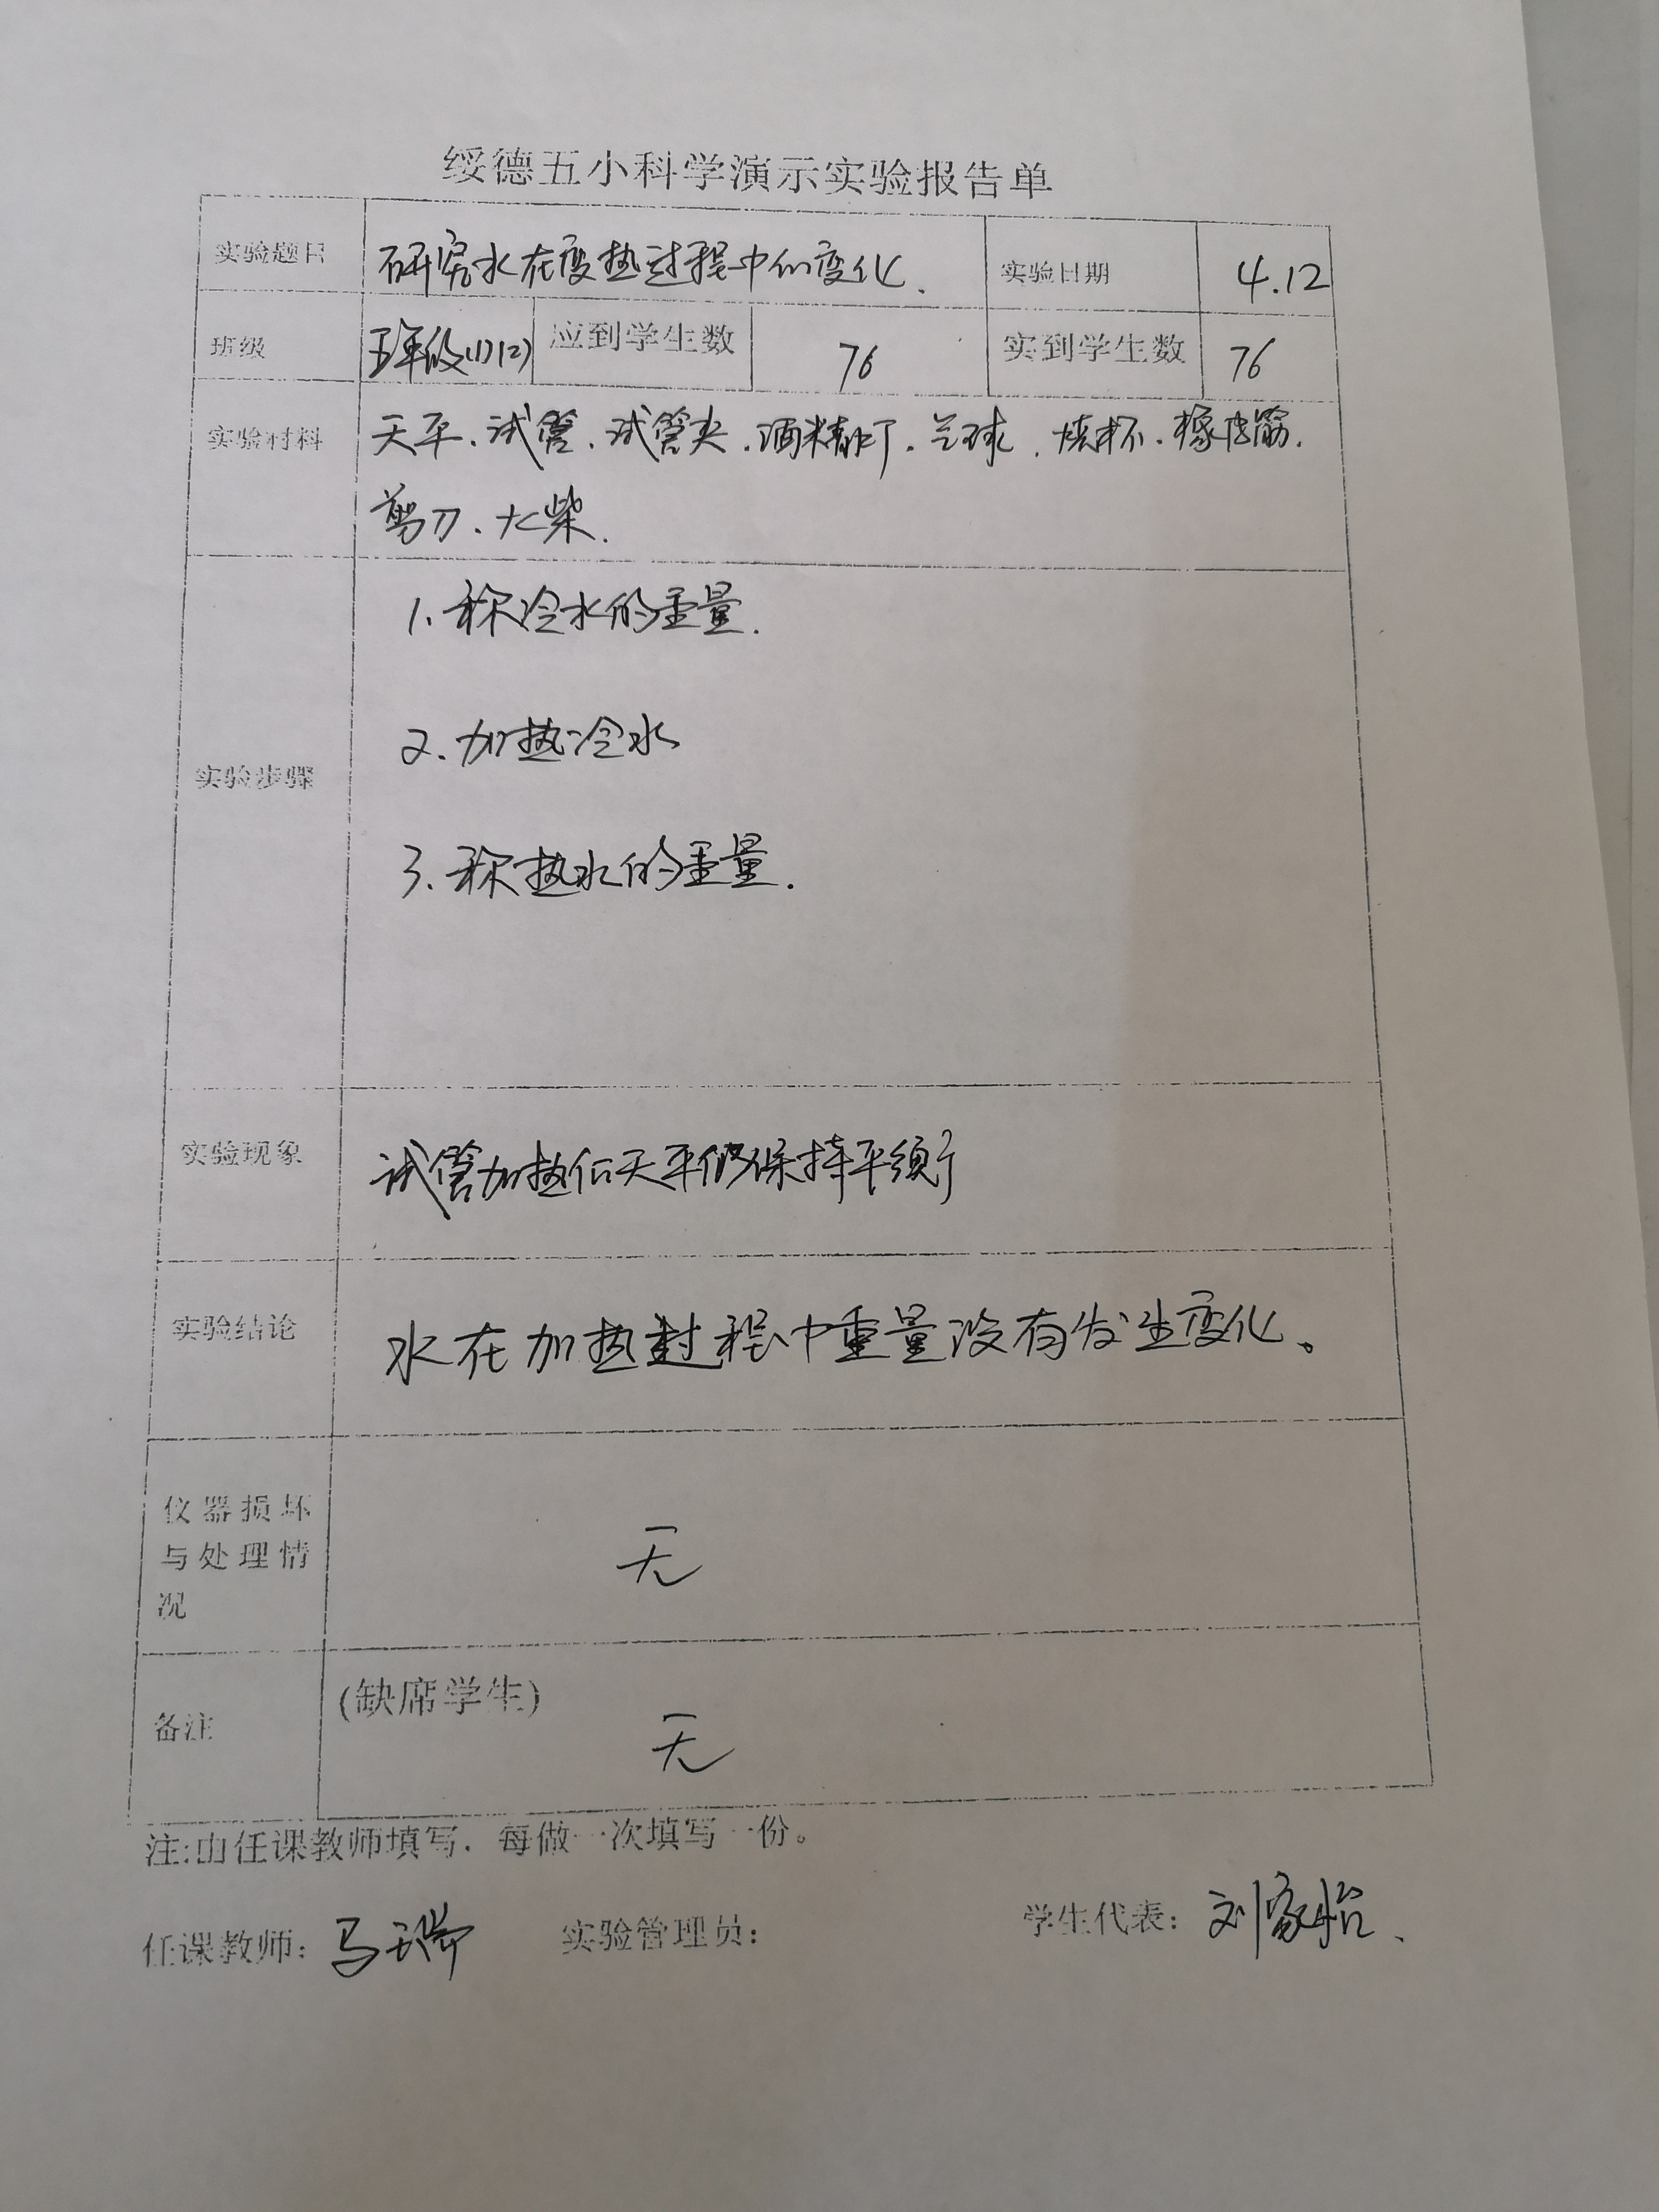 绥德五小科学演示实验报告单
实验题目 研究水在变热过程中的变化. 实验日期 4.12
班级 五年级(1)(2) 应到学生数 76 实到学生数 76
实验材料 天平、试管、试管夹、酒精灯、气球、烧杯、橡皮筋.
剪刀、火柴.
1.称冷水的重量.
2.加热冷水
实验步骤
3.称热水的重量.
实验现象 试管加热后天平仍保持平衡
实验结论 水在加热过程中重量没有发生变化。
仪器损坏
与处理情 无
况
(缺席学生)
备注 无
注:由任课教师填写,每做一次填写一份。
任课教师: 马瑞 实验管理员: 学生代表: 刘家怡.